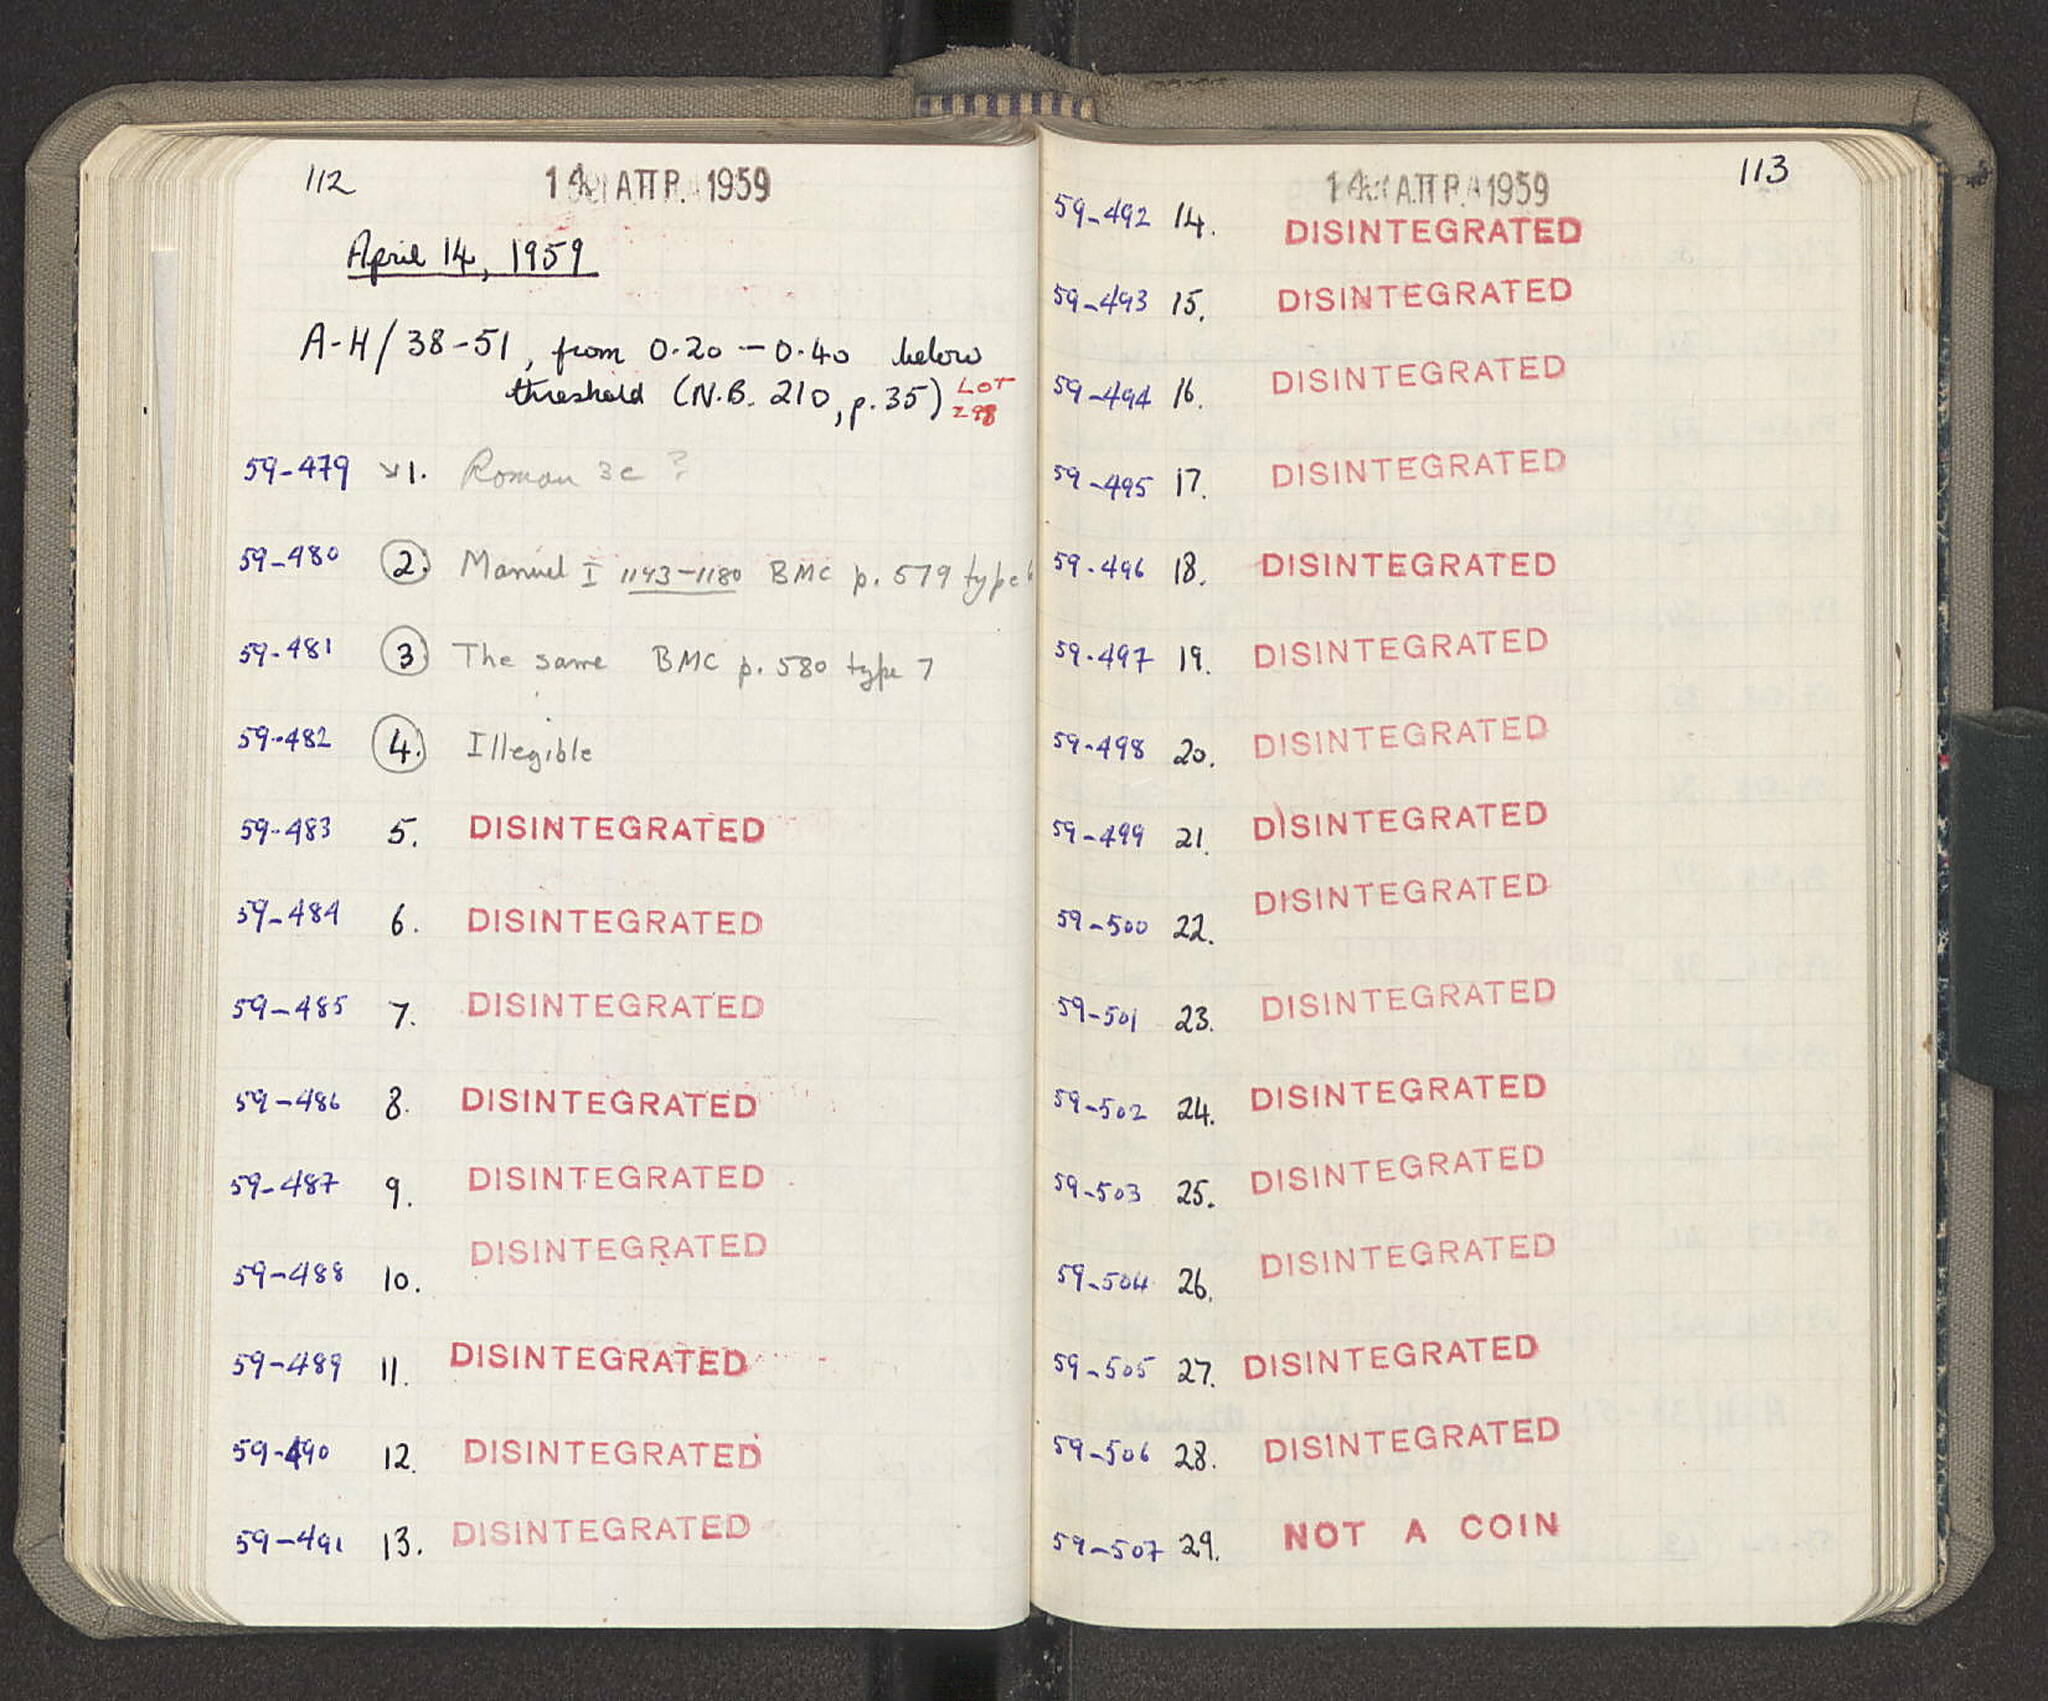 112
14 ΑΠΡ. 1959
April 14, 1959
A-H/38-51, from 0.20 – 0.40 below
threshold (N.B. 210, p. 35) LOT
298
59-479 ↘1. Roman 3c ?
59-480 2. Manuel I 1143-1180 BMC p. 579 type 6
59-481 3. The same BMC p. 580 type 7
59-482 4. Illegible
59-483 5. DISINTEGRATED
59-484 6. DISINTEGRATED
59-485 7. DISINTEGRATED
59-486 8. DISINTEGRATED
59-487 9. DISINTEGRATED
59-488 10. DISINTEGRATED
59-489 11. DISINTEGRATED
59-490 12. DISINTEGRATED
59-491 13. DISINTEGRATED
113
14 ΑΠΡ. 1959
59-492 14. DISINTEGRATED
59-493 15. DISINTEGRATED
59-494 16. DISINTEGRATED
59-495 17. DISINTEGRATED
59-496 18. DISINTEGRATED
59-497 19. DISINTEGRATED
59-498 20. DISINTEGRATED
59-499 21. DISINTEGRATED
59-500 22. DISINTEGRATED
59-501 23. DISINTEGRATED
59-502 24. DISINTEGRATED
59-503 25. DISINTEGRATED
59-504 26. DISINTEGRATED
59-505 27. DISINTEGRATED
59-506 28. DISINTEGRATED
59-507 29. NOT A COIN